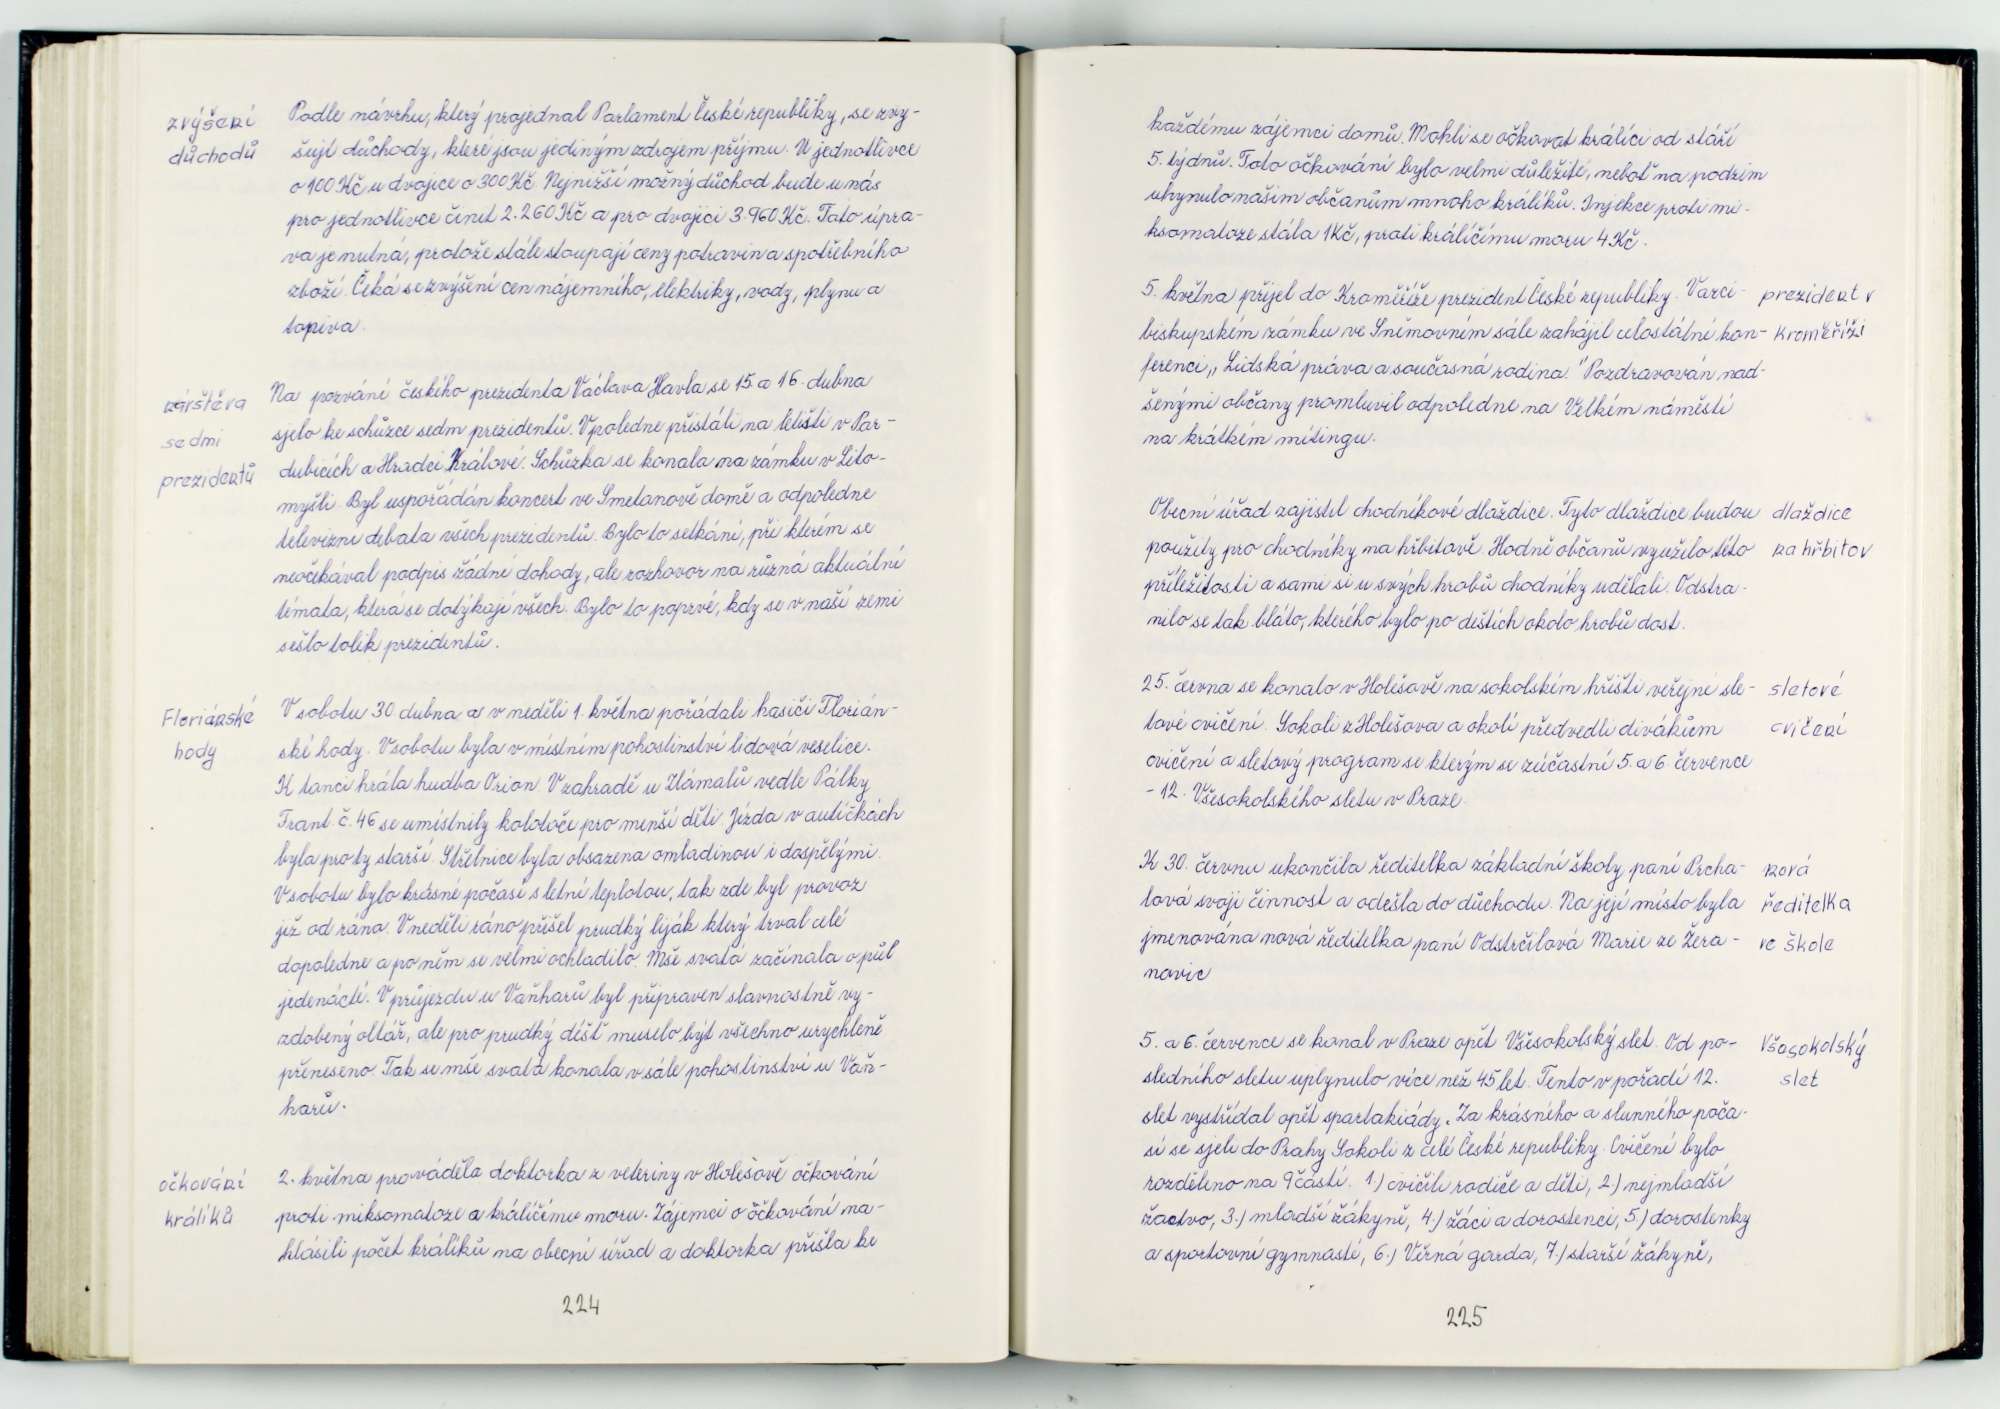 zvýšení
důchodů
Podle návrhu, který projednal Parlament České republiky, se zvy-
šují důchody, které jsou jediným zdrojem příjmu. U jednotlivce
o 100 Kč u dvojice o 300 Kč. Nejnižší možný důchod bude u nás
pro jednotlivce činit 2.260 Kč a pro dvojici 3.960 Kč. Tato úpra-
va je nutná, protože stále stoupají ceny potravin a spotřebního
zboží. Čeká se zvýšení cen nájemního, elektriky, vody, plynu a
topiva.
návštěva
sedmi
prezidentů
Na pozvání českého prezidenta Václava Havla se 15. a 16. dubna
sjelo ke schůzce sedm prezidentů. V poledne přistáli na letišti v Par-
dubicích a Hradci Králové. Schůzka se konala na zámku v Lito-
myšli. Byl uspořádán koncert ve Smetanově domě a odpoledne
televizní debata všech prezidentů. Bylo to setkání, při kterém se
neočekával podpis žádné dohody, ale rozhovor na různá aktuální
témata, která se dotýkají všech. Bylo to poprvé, kdy se v naší zemi
sešlo tolik prezidentů.
Floriánské
hody
V sobotu 30 dubna a v neděli 1. května pořádali hasiči Florián-
ské hody. V sobotu byla v místním pohostinství lidová veselice.
K tanci hrála hudba Orion V zahradě u Zlámalů vedle Pálky
Frant. č. 46 se umístnily kolotoče pro menší děti. Jízda v autíčkách
byla pro ty starší. Střelnice byla obsazena omladinou i dospělými.
V sobotu bylo krásné počasí s letní teplotou, tak zde byl provoz
již od rána. V neděli ráno přišel prudký liják který trval celé
dopoledne a po něm se velmi ochladilo. Mše svatá začínala o půl
jedenácté. V průjezdu u Vaňharů byl připraven slavnostně vy-
zdobený oltář, ale pro prudký déšť muselo být všechno urychleně
přeneseno. Tak se mše svatá konala v sále pohostinství u Vaň-
harů.
očkování
králíků
2. května prováděla doktorka z veteriny v Holešově očkování
proti miksomatoze a králičímu moru. Zájemci o očkování na-
hlásili počet králíků na obecní úřad a doktorka přišla ke
224
každému zájemci domů. Mohli se očkovat králíci od stáří
5. týdnů. Toto očkování bylo velmi důležité, neboť na podzim
uhynulo našim občanům mnoho králíků. Injekce proti mi-
ksomatoze stála 1 Kč, proti králičímu moru 4 Kč.
5. května přijel do Kroměříže prezident České republiky. V arci-
biskupském zámku ve Sněmovním sále zahájil celostátní kon-
ferenci „Lidská práva a současná rodina." Pozdravován nad-
šenými občany promluvil odpoledne na Velkém náměstí
na krátkém mítingu.
prezident v
Kroměříži
Obecní úřad zajistil chodníkové dlaždice. Tyto dlaždice budou
použity pro chodníky na hřbitově. Hodně občanů využilo této
příležitosti a sami si u svých hrobů chodníky udělali. Odstra-
nilo se tak bláto, kterého bylo po deštích okolo hrobů dost.
dlaždice
na hřbitov
25. června se konalo v Holešově na sokolském hřišti veřejné sle-
tové cvičení. Sokoli z Holešova a okolí předvedli divákům
cvičení a sletový program se kterým se zúčastní 5. a 6. července
- 12. Všesokolského sletu v Praze.
sletové
cvičení
K 30. červnu ukončila ředitelka základní školy paní Prcha-
lová svoji činnost a odešla do důchodu. Na její místo byla
jmenována nová ředitelka paní Odstrčilová Marie ze Žera-
novic
nová
ředitelka
ve škole
5. a 6. července se konal v Praze opět Všesokolský slet. Od po-
sledního sletu uplynulo více než 45 let. Tento v pořadí 12.
slet vystřídal opět spartakiády. Za krásného a slunného poča-
sí se sjeli do Prahy Sokoli z celé České republiky. Cvičení bylo
rozděleno na 9 částí. 1.) cvičili rodiče a děti, 2.) nejmladší
žactvo, 3.) mladší žákyně, 4.) žáci a dorostenci, 5.) dorostenky
a sportovní gymnasté, 6.) Věrná garda, 7.) starší žákyně,
Všesokolský
slet
225